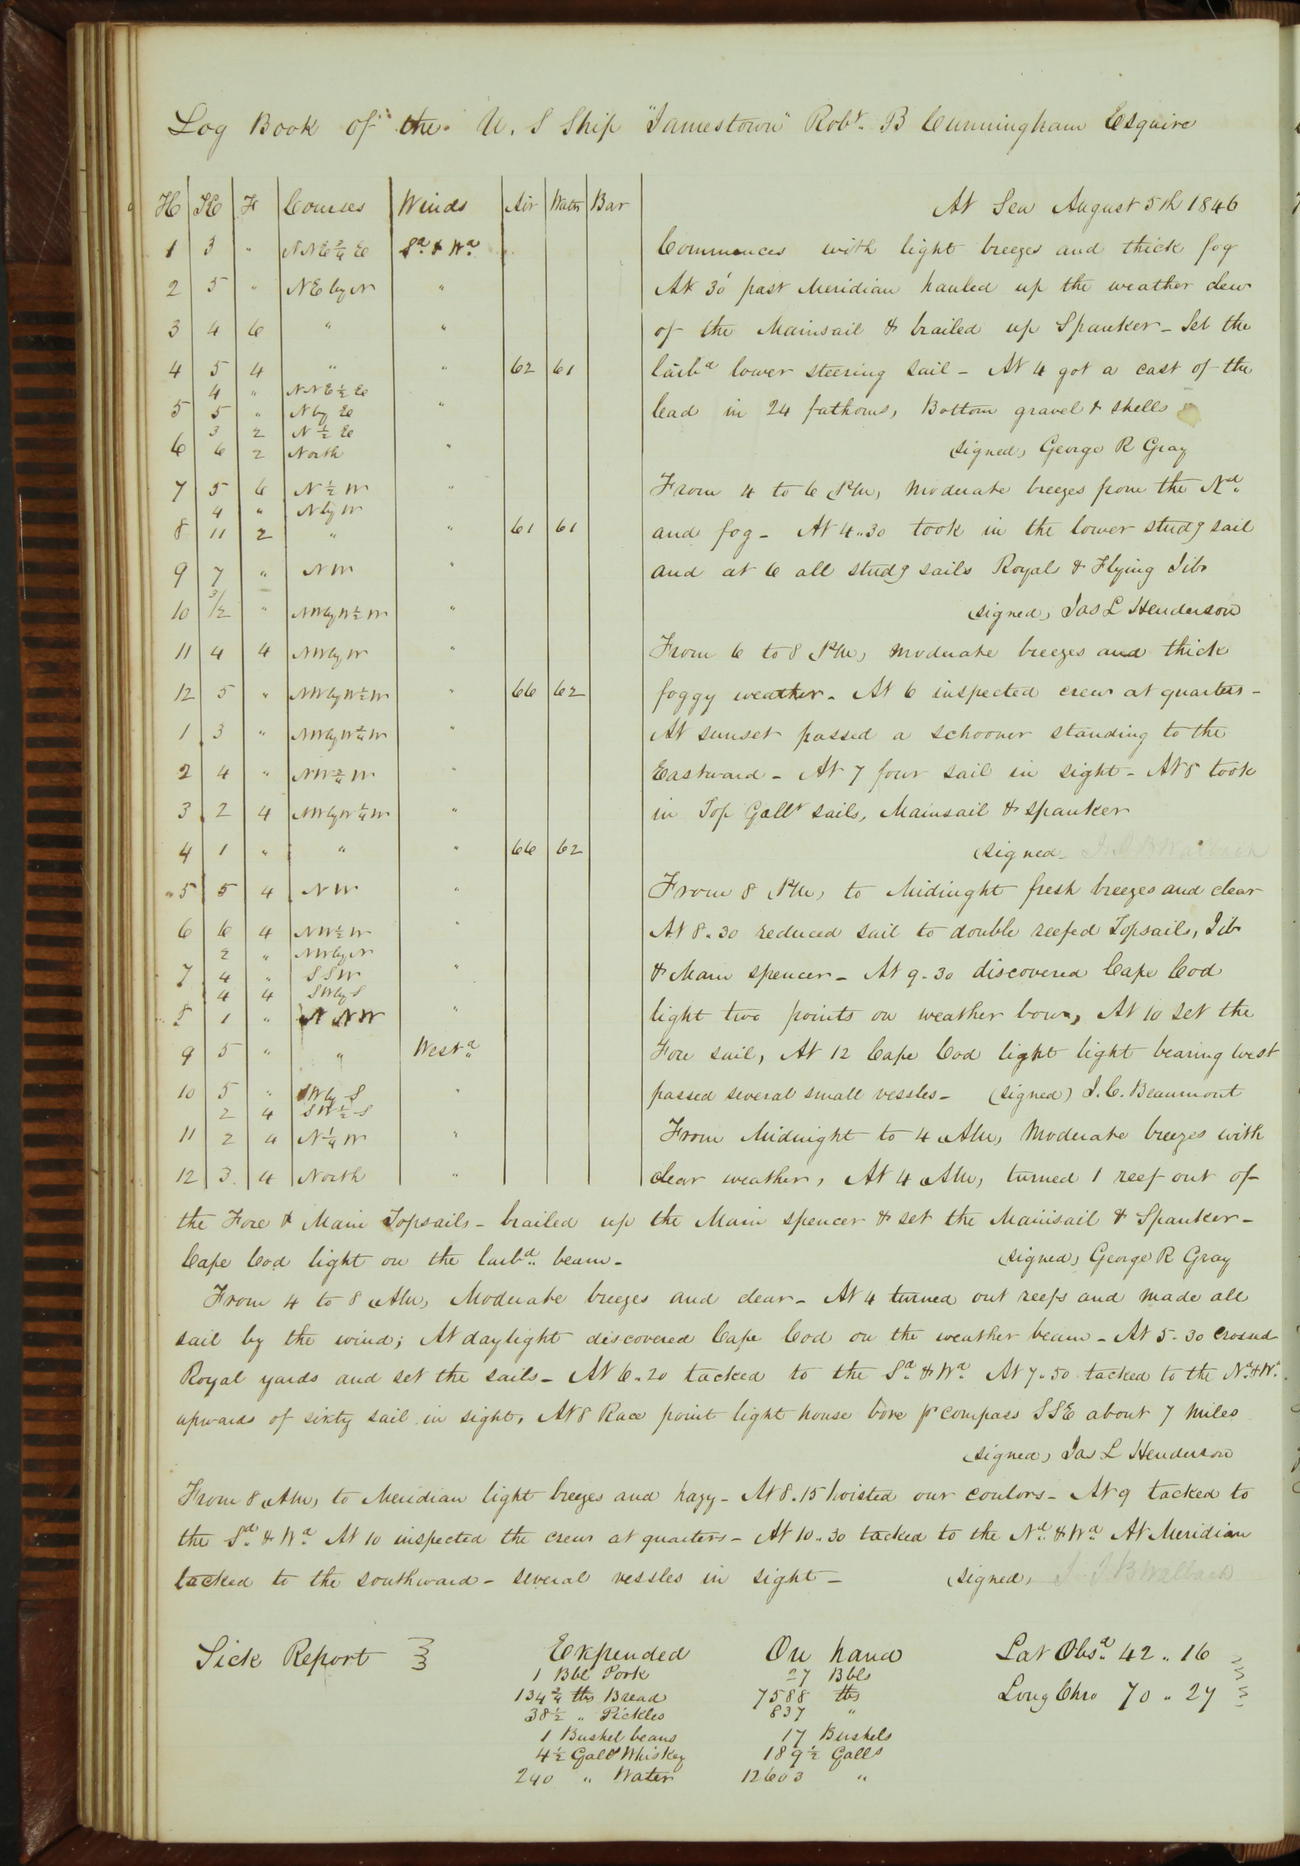 Log Book of the U. S Ship "Jamestown" Robt. B Cunningham Esquire
H K F Courses Winds Air Water Bar
At Sea August 5th 1846
1 3 " NNE¾E Sd & Wd
2 5 " NE by N "
3 4 6 " "
4 5 4 " " 62 61
4 " NNE½E
5 5 " N by E "
3 2 N ½ E
6 6 2 North "
7 5 6 N ½ W "
4 " N by W
8 11 2 " " 61 61
9 7 " NW "
10 3/½ " NW by W½W "
11 4 4 NW by W "
12 5 " NW by W½W " 66 62
1 3 " NW by W¾W "
2 4 " NW¾W "
3 2 4 NW by W¼W "
4 1 " " " 66 62
5 5 4 NW "
6 6 4 NW½W "
2 " NW by N
7 4 " SSW "
4 4 SW by S
8 1 " NNW "
9 5 " " Westd
10 5 " SW by S "
2 4 SW½S
11 2 4 N¼W "
12 3 4 North "
Commences with light breezes and thick fog
At 30' past Meridian hauled up the weather clew
of the Mainsail & brailed up Spanker - Set the
larbd lower steering sail - At 4 got a cast of the
lead in 24 fathoms, Bottom gravel & shells
signed, George R Gray
From 4 to 6 PM, moderate breezes from the Nd.
and fog - At 4..30 took in the lower studg sail
and at 6 all studg sails Royals & Flying Jib
signed, Jas L Henderson
From 6 to 8 PM, moderate breezes and thick
foggy weather - At 6 inspected crew at quarters -
At sunset passed a schooner standing to the
Eastward - At 7 four sail in sight - At 8 took
in Top Gallt sails, Mainsail & spanker
signed - J. J B Walbach
From 8 PM, to Midnight fresh breezes and clear
At 8.30 reduced sail to double reefed Topsails, Jib
& Main spencer - At 9.30 discovered Cape Cod
light two points on weather bow, At 10 set the
Fore sail, At 12 Cape Cod light light bearing west
passed several small vessles - (signed) J. C. Beaumont
From Midnight to 4 AM, Moderate breezes with
clear weather, At 4 AM, turned 1 reef out of
the Fore & Main Topsails - brailed up the Main spencer & set the Mainsail & Spanker -
Cape Cod light on the larbd. beam - signed, George R Gray
From 4 to 8 AM, Moderate breezes and clear - At 4 turned out reefs and made all
sail by the wind; At daylight discovered Cape Cod on the weather beam - At 5.30 crossed
Royal yards and set the sails - At 6.20 tacked to the Sd. & Wd. At 7.50 tacked to the Nd. & Wd.
upwards of sixty sail in sight, At 8 Race point light house bore pr compass SSE about 7 miles
signed, Jas L Henderson
From 8 AM, to Meridian light breezes and hazy - At 8.15 hoisted our coulors - At 9 tacked to
the Sd. & Wd. At 10 inspected the crew at quarters - At 10..30 tacked to the Nd. & Wd. At Meridian
tacked to the southward - several vessles in sight - signed, J. J B Walbach
Sick Report 3 Expended On hand Lat Obsd. 42 .. 16
1 Bbl Pork 27 Bbls
134¾ lbs Bread 7588 lbs Long Chro 70 .. 27
38½ " Pickles 837 "
1 Bushel beans 17 Bushels
4½ Galls Whiskey 189½ Galls
240 " Water 12603 "